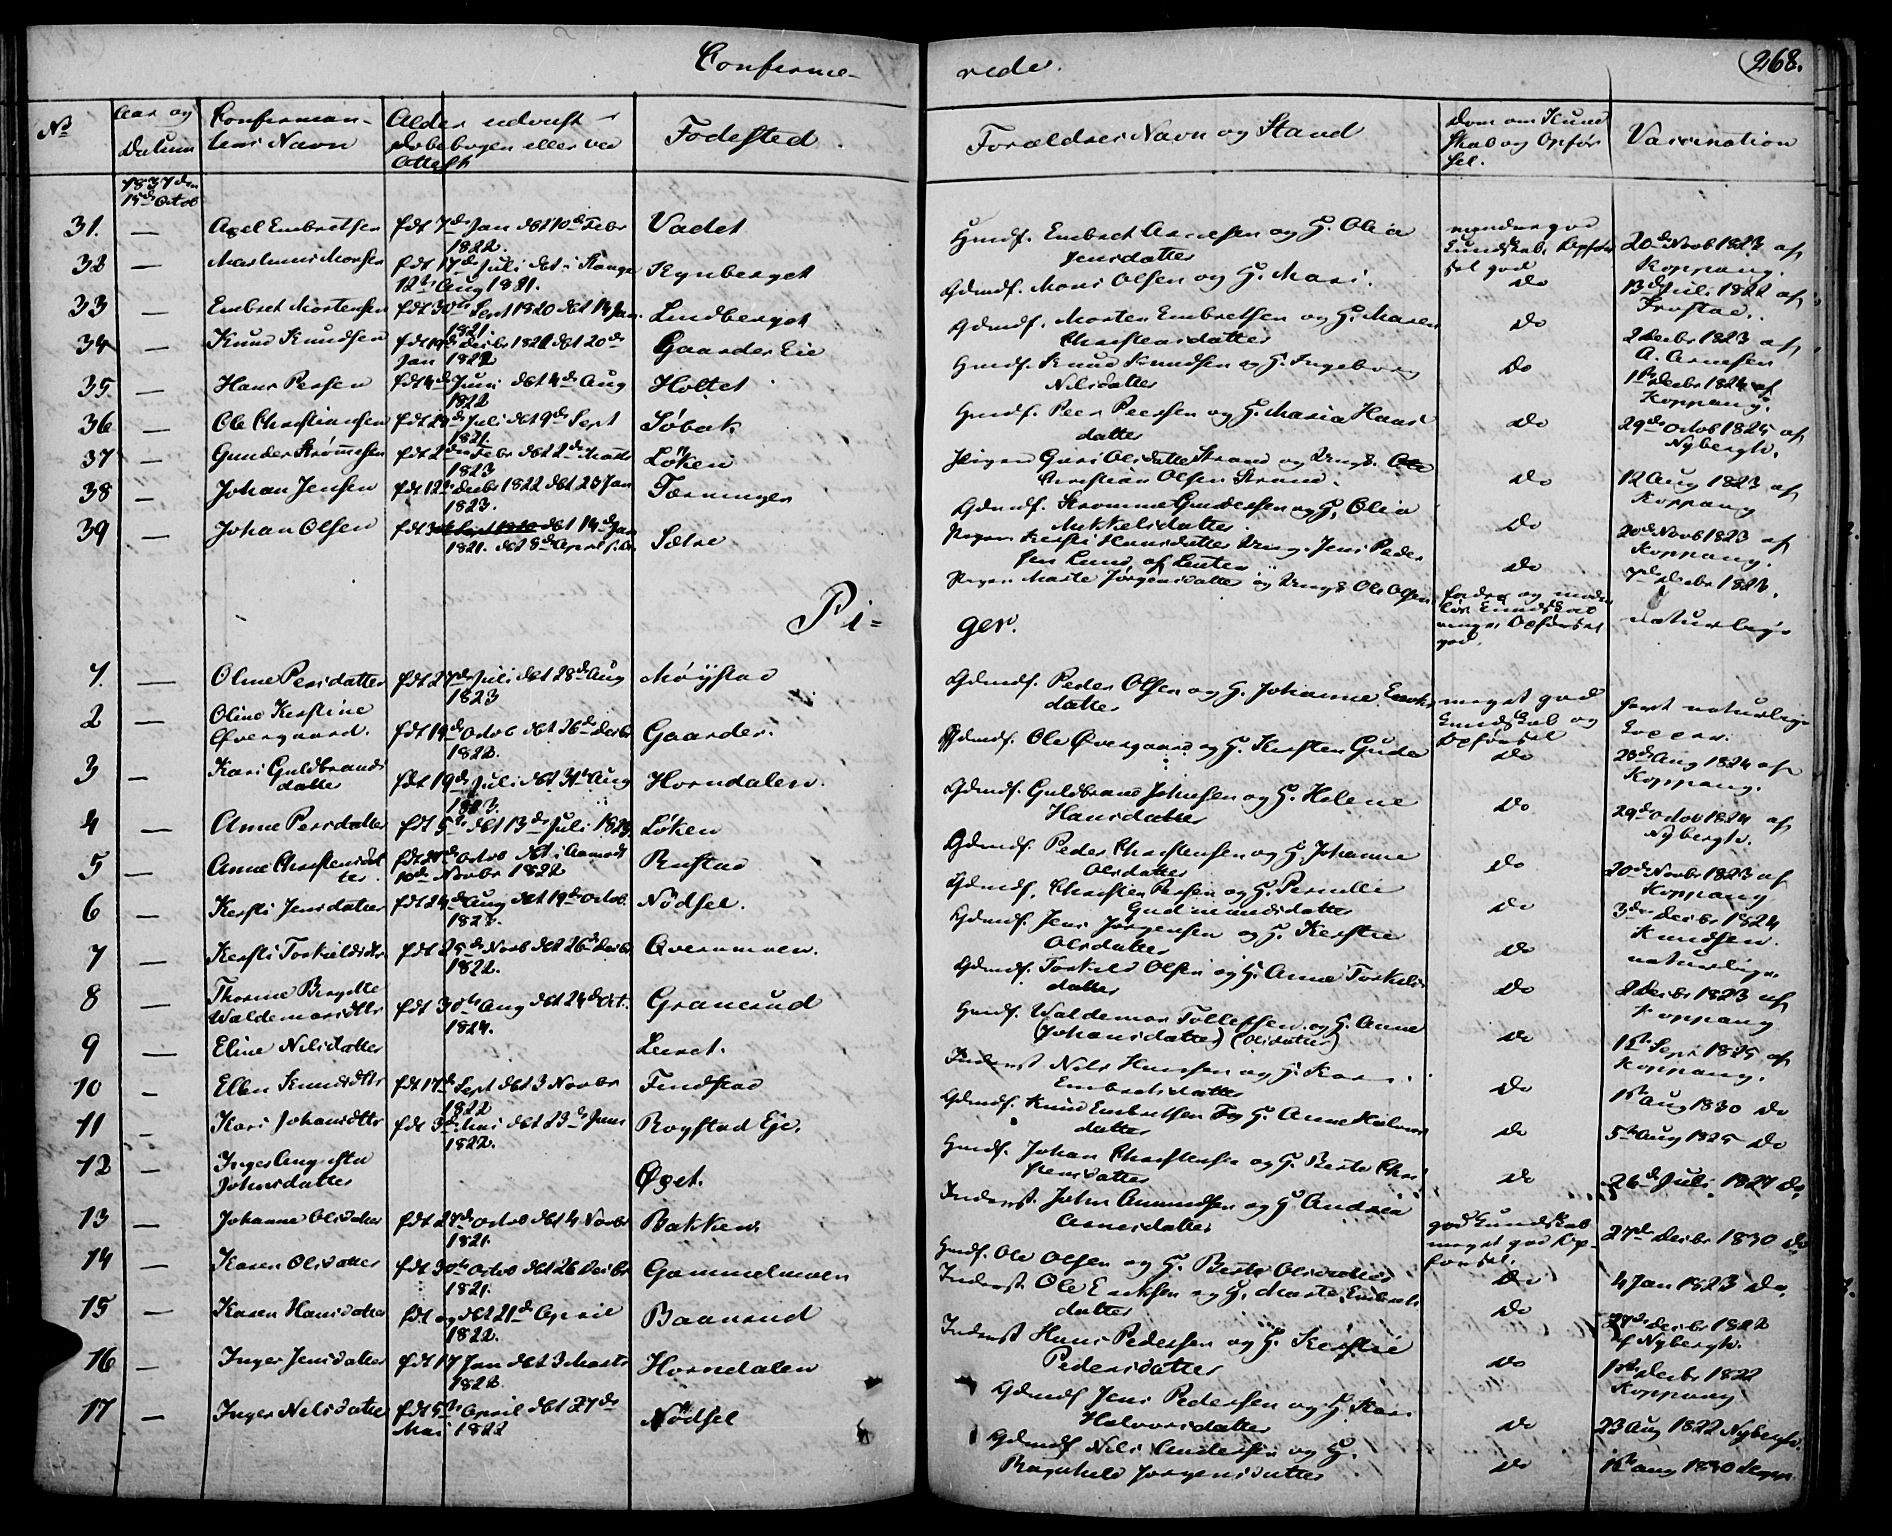 Confirme-
rede.
268.
No
Aar og
Datum
Confirman-
tens Navn
Alder udviist
Døbebogen eller ved
Attest
Fødested.
Forældres Navn og Stand
Dom om Kund
skab og Opfør
sel.
Vaccination
1837 den
15de Octob
31. — Axel Embretsen fdt 7de Jan døbt 10de Febr
1822.
Vadet
Gmdf. Embret Arnesen og H. Olia
Jensdatter
kundskab, Opfør
sel god
20de Novb 1823 af
Koppang.
32 — fdt 17de Juli døbt i Stange
12te Aug 1821.
Kynberget
Gdmdf. Mons Olsen og H. Mari.
do
13de Juli 1822 af
33 — Embret Mortensen fdt 30te Sept 1820 døbt 14 Jan
1821.
Lindberget
Gdmdf. Morten Embretsen og H. Maren
Christensdatter
do
2 Decbr 1823 af
A. Arnesen
34 — Knud Knudsen
Jan 1822
Gaarder Eie
Gmdf. Knud Knudsen og H. Ingeborg
Nilsdatter
do
1ste Decbr 1824 af
Koppang.
35 — Hans Persen fdt 4de Juni døbt 4de Aug
1822
Holtet
Gmdf. Peer Peersen og H. Maria Hans
datter
do
29de Octob 1825 af
Nybergh.
36 — Ole Christiansen fdt 24de Juli døbt 9de Sept
1821.
Søbak
Pigen Guri Olsdatter Strand og Ungk. Ole
Christian Olsen Strand.
do
12 Aug 1823 af
Koppang
37 — Gunder Strømmesen fdt 2den Febr døbt 2de Marts
1823
Løken
Gdmdf. Strømme Gundersen og H. Olia
Mikkelsdatter
do
20de Novb 1823 af
Koppang.
38 — Johan Jensen fdt 12te Decbr 1822 døbt 23 Jan
1823.
Tærninger
Pigen Kersti Hansdatter Ung. Jens Peder
sen Lund af Leuten
do
7de Decbr 1824.
39 — Johan Olsen
1821. døbt 8de April s. A.
Sætre
Pigen Marte Jørgensdatter og Ungk Ole Olsen
god.
naturlige
Pi-
ger.
1. — Oline Persdatter fdt 27de Juli døbt 28de Aug
1823
Møystad
Gdmdf. Peder Olsen og H. Johanne Erichs
datter
meget god
Kundskab og
Opførsel
havt naturlige
Kopper.
2 — Oline Kerstine
Øvergaard. fdt 19de Octob døbt 26de Decbr
1822.
Gaarder.
Gdmdf. Ole Øvergaard og H. Kersten Guda
do
28de Aug 1824 af
Koppang.
3 — Kari Guldbrands
datter fdt 19de Juli døbt 31te Aug
1823.
Horndalen.
Gdmdf. Guldbrand Johnsen og H. Helene
Hansdatter
do
29de Octob 1824 af
Nybergh.
4 — Anne Persdatter fdt 5te døbt 13de Juli 1823
Løken
Gdmdf. Peder Christensen og H. Johanne
Olsdatter
do
20de Novbr 1823 af
Koppang
5 — Anne Christensdat
ter. fdt 21de Octob døbt i Aamodt
10de Novbr 1822
Rustad
Gdmdf. Christen Persen og H. Pernille
Gudmundsdatter
do
3de Decbr 1824
Knudsen.
6 — Kersti Jensdatter fdt 24de Aug døbt 19de Octob
1823.
Nødsel.
Gdmdf. Jens Jørgensen og H. Kerstie
Olsdatter
do
naturlige.
7 — Kersti Torkildsdtr fdt 25de Novb døbt 26de Decbr
1822.
Qvernmoen.
Gdmdf. Torkild Olsen og H. Anne Torkilds
datter
do
8 Decbr 1823 af
Koppang
8 — Thorine Birgitte
Waldemarsdtr fdt 30te Aug døbt 24de Oct.
1824.
Granerud
Gmdf. Waldemar Tollefsen og H. Anne
(Johansdatter) (Olsdatter)
do
1ste Sept 1825 af
Koppang.
9 — Eline Nilsdatter
Leiret.
Inderst Nils Hansen og H. Kari
Embretsdatter
do
1ste Aug 1830 do
10 — Ellen Knudsdtr fdt 17de Sept døbt 3 Novbr
1822
Findstad
Gdmdf. Knud Embretsen og H. Anne Halvors
datter
do
5te Aug 1825 do
11 — Kari Johansdtr fdt 3de Mai døbt 23de Juni
1822.
Rogstad Eje.
Gmdf. Johan Christensen og H. Berte Chri
stensdatter
do
26de Juli 1827 do.
12 — Inger Augusta
Johnsdatter
Øset.
Inderst. John Amundsen og H Andrea
Arnesdatter
god Kundskab
meget god Op-
førsel.
27de Decbr 1830 do
13 — Johanne Olsdatter fdt 27de Octob døbt 4 Novbr
1821.
Bakken.
Gmdf. Ole Olsen og H. Berte Olsdatter
do
4 Jan 1823 do.
14 — Karen Olsdatter fdt 30te Octob døbt 26 Decbr
1821.
Gammelmoen
Inderst Ole Erichsen og H. Marte Embrets
datter
do
27de Decbr 1822
af Nybergh.
15 — Karen Hansdatter fdt og døbt 21de April
1822.
Baanrud
Inderst Hans Pedersen og H. Kerstie
Pedersdatter
do
Koppang
16 — Inger Jensdatter fdt 17 Jan døbt 3 Marts
1822.
Hornedalen
Gdmdf Jens Pedersen og H. Kari
Halvorsdatter
do
23 Aug 1822 Nybergh.
17 — Inger Nilsdatter fdt 5te April døbt 27de
Mai 1822
Nødsel
Gdmdf Nils Andersen og H.
Ragnhild Jørgensdatter
do
1ste Aug 1830 Kopp.